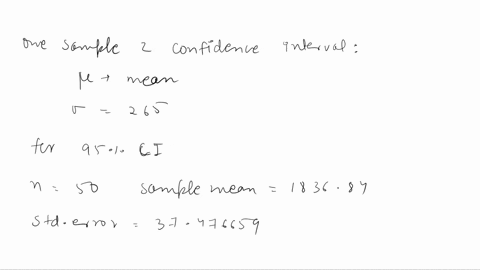 one sample z confidence interval:
μ → mean
σ = 265
for 95.1. CI
n = 50 sample mean = 1836.84
std.error = 37.476659